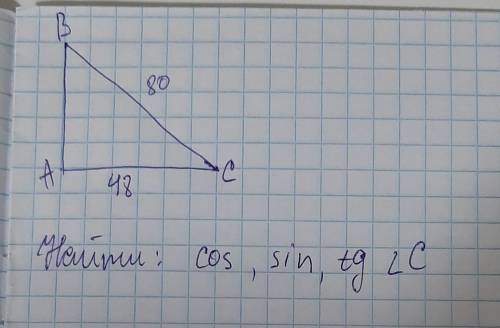 B
80
A
48
C
Найти: cos, sin, tg ∠C